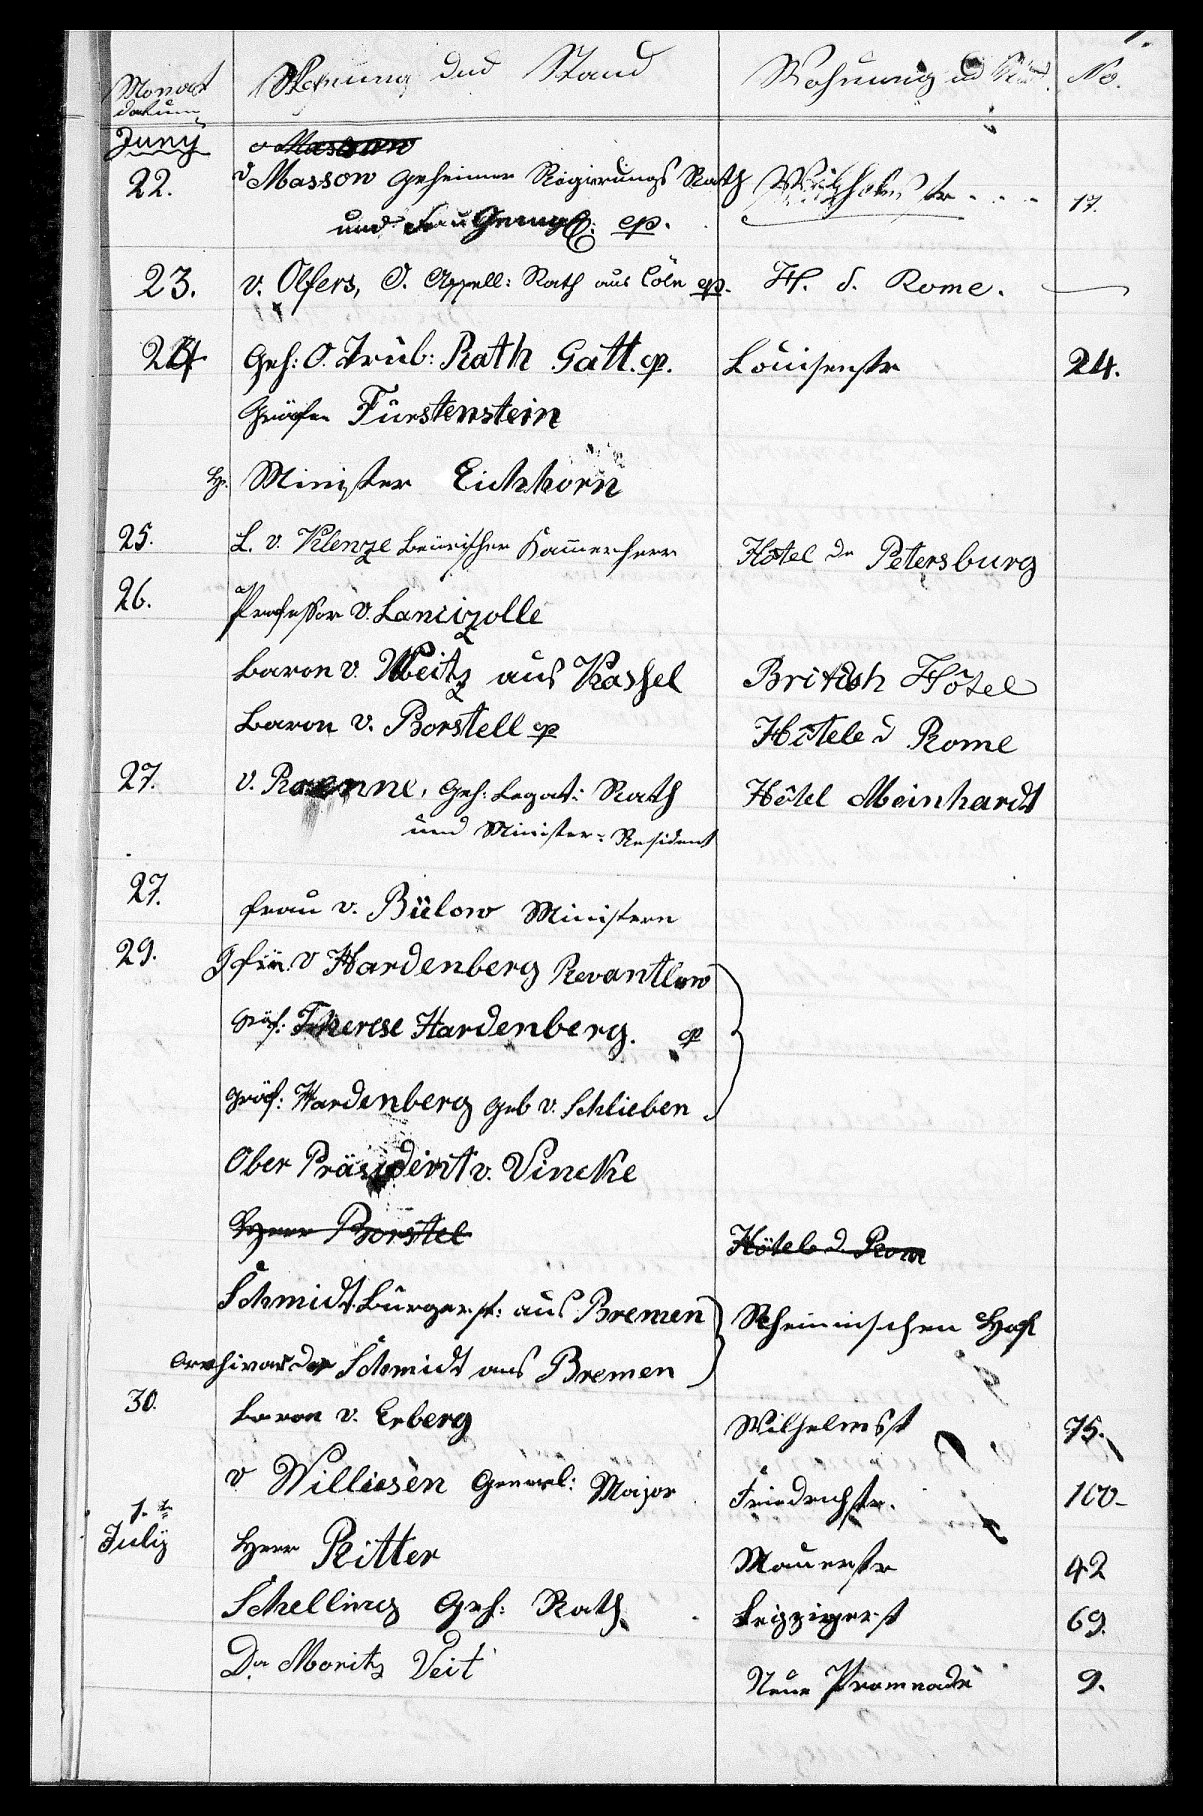 1.
Monat datum Nahmung und Stand Wohnung und No.
Juny v Massow
22. v Massow geheimer Regierungs Rath Wilhelmstr. . . . 17.
und Frau Gemahl: ep.
23. v. Olfers, O. Appell: Rath aus Cöln ep. H. d. Rome.
24 Geh: O. Trüb: Rath Gatt. ep. Louisenstr 24.
Gräfin Fürstenstein
H. Minister Eichhorn
25. L. v. Klenze Beürischer Kammerherr Hôtel de Petersburg
26. Professor v. Lancizolle
Baron v. Weitz aus Kassel British Hôtel
Baron v. Borstell ep Hôtel d Rome
27. v. Roenne, Geh: Legat: Rath Hôtel Meinhardt
und Minister-Resident
27. Frau v. Bülow Ministern
29. Gfin. v Hardenberg Revantlow
Gräf: Therese Hardenberg. ep
Gräf: Hardenberg geb v. Schlieben
Ober Präsident v. Vincke
Herr Borstel Hôtel d. Rom
Schmidt Bürgerst: aus Bremen Rheinischen Hof
Archivar der Schmidt aus Bremen
30. Baron v. Erberg Wilhelmst 75.
v Williesen General: Major Friedrichstr. 100
1.t July Herr Ritter Mauerstr 42
Schelling Geh: Rath Leipzigerst 69.
Dr Moritz Veit Neue Promenade 9.